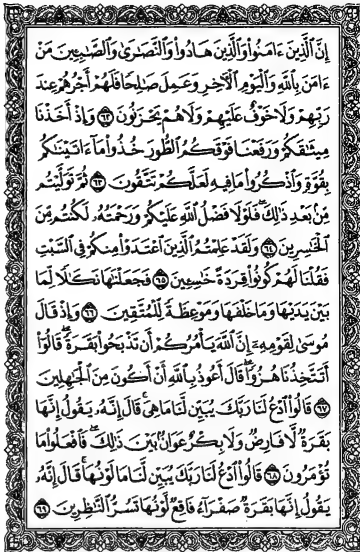 إِنَّ ٱلَّذِينَ ءَامَنُوا۟ وَٱلَّذِينَ هَادُوا۟ وَٱلنَّصَٰرَىٰ وَٱلصَّٰبِـِٔينَ مَنْ
ءَامَنَ بِٱللَّهِ وَٱلْيَوْمِ ٱلْءَاخِرِ وَعَمِلَ صَٰلِحًا فَلَهُمْ أَجْرُهُمْ عِندَ
رَبِّهِمْ وَلَا خَوْفٌ عَلَيْهِمْ وَلَا هُمْ يَحْزَنُونَ ٦٢ وَإِذْ أَخَذْنَا
مِيثَٰقَكُمْ وَرَفَعْنَا فَوْقَكُمُ ٱلطُّورَ خُذُوا۟ مَآ ءَاتَيْنَٰكُم
بِقُوَّةٍ وَٱذْكُرُوا۟ مَا فِيهِ لَعَلَّكُمْ تَتَّقُونَ ٦٣ ثُمَّ تَوَلَّيْتُم
مِّنۢ بَعْدِ ذَٰلِكَ ۖ فَلَوْلَا فَضْلُ ٱللَّهِ عَلَيْكُمْ وَرَحْمَتُهُۥ لَكُنتُم مِّنَ
ٱلْخَٰسِرِينَ ٦٤ وَلَقَدْ عَلِمْتُمُ ٱلَّذِينَ ٱعْتَدَوْا۟ مِنكُمْ فِى ٱلسَّبْتِ
فَقُلْنَا لَهُمْ كُونُوا۟ قِرَدَةً خَٰسِـِٔينَ ٦٥ فَجَعَلْنَٰهَا نَكَٰلًا لِّمَا
بَيْنَ يَدَيْهَا وَمَا خَلْفَهَا وَمَوْعِظَةً لِّلْمُتَّقِينَ ٦٦ وَإِذْ قَالَ
مُوسَىٰ لِقَوْمِهِۦٓ إِنَّ ٱللَّهَ يَأْمُرُكُمْ أَن تَذْبَحُوا۟ بَقَرَةً ۖ قَالُوٓا۟
أَتَتَّخِذُنَا هُزُوًا ۖ قَالَ أَعُوذُ بِٱللَّهِ أَنْ أَكُونَ مِنَ ٱلْجَٰهِلِينَ
٦٧ قَالُوا۟ ٱدْعُ لَنَا رَبَّكَ يُبَيِّن لَّنَا مَا هِىَ ۚ قَالَ إِنَّهُۥ يَقُولُ إِنَّهَا
بَقَرَةٌ لَّا فَارِضٌ وَلَا بِكْرٌ عَوَانٌۢ بَيْنَ ذَٰلِكَ ۖ فَٱفْعَلُوا۟ مَا
تُؤْمَرُونَ ٦٨ قَالُوا۟ ٱدْعُ لَنَا رَبَّكَ يُبَيِّن لَّنَا مَا لَوْنُهَا ۚ قَالَ إِنَّهُۥ
يَقُولُ إِنَّهَا بَقَرَةٌ صَفْرَآءُ فَاقِعٌ لَّوْنُهَا تَسُرُّ ٱلنَّٰظِرِينَ ٦٩